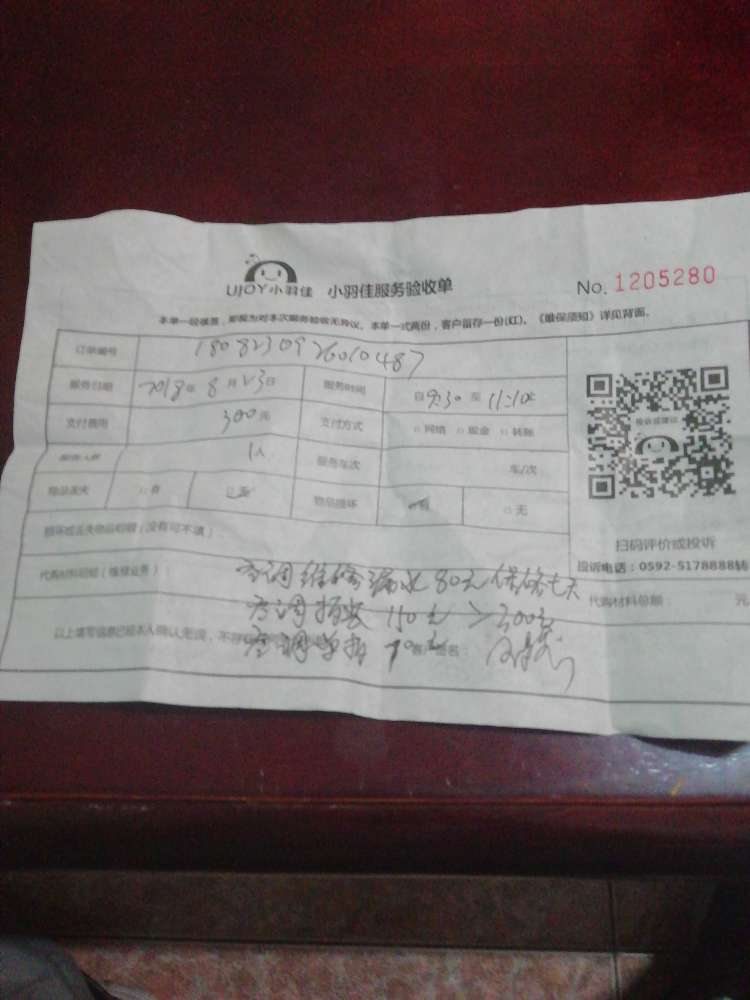 UJOY小羽佳 小羽佳服务验收单 No. 1205280
本单一经签署，即视为对本次服务验收无异议。本单一式两份，客户留存一份(红)。《维保须知》详见背面。
订单编号 1808230926010487
服务日期 2018年8月23日 服务时间 自9:30至11:10
支付费用 300元 支付方式 □网络 □现金 □转账
服务人数 1人 服务车次 车/次
物品丢失 □有 □无 物品损坏 □有 □无
损坏或丢失物品明细（没有可不填）
代购材料明细（维修业务） 空调维修漏水80元保修七天
代购材料总额： 元
空调拆装150元 >300元
以上填写信息已经本人确认无误，不存 客户签名：
空调单拆70元
投诉或建议
扫码评价或投诉
投诉电话：0592-5178888转